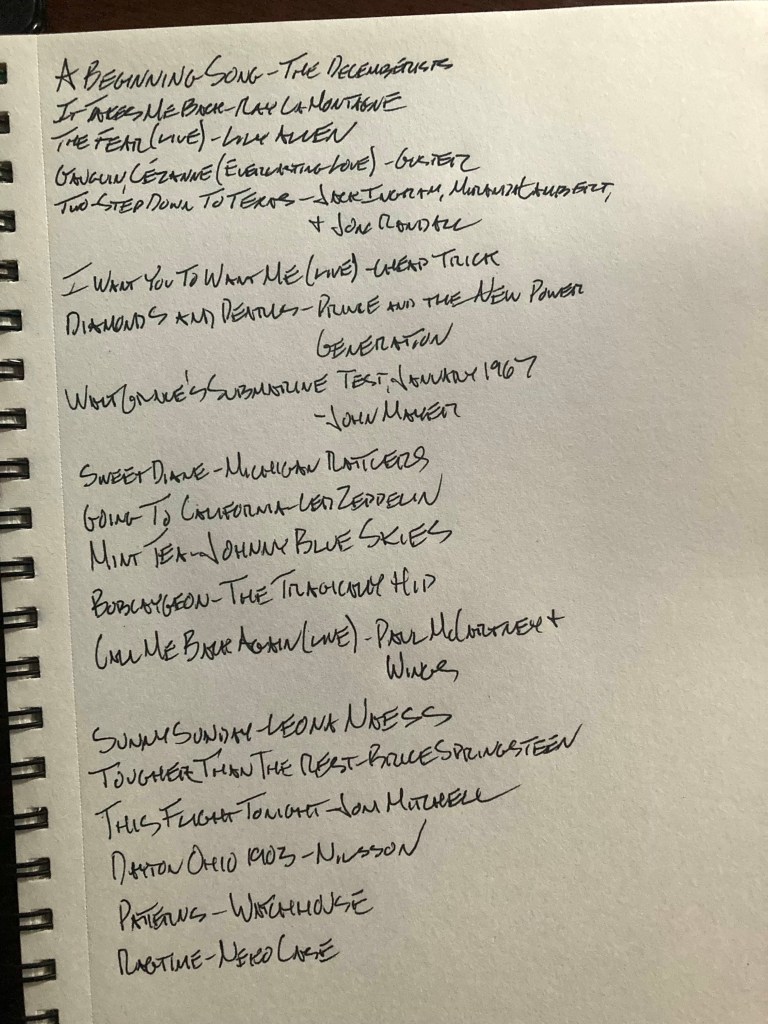 A BEGINNING SONG - THE DECEMBERISTS
IT TAKES ME BACK - RAY LAMONTAGNE
THE FEAR (LIVE) - LILY ALLEN
GAUGUIN, CÉZANNE (EVERLASTING LOVE) - GUSTER
TWO-STEP DOWN TO TEXAS - JACK INGRAM, MIRANDA LAMBERT,
+ JON RANDALL
I WANT YOU TO WANT ME (LIVE) - CHEAP TRICK
DIAMONDS AND PEARLS - PRINCE AND THE NEW POWER
GENERATION
WALT GRACE'S SUBMARINE TEST, JANUARY 1967
- JOHN MAYER
SWEET DIANE - MICHIGAN RATTLERS
GOING TO CALIFORNIA - LED ZEPPELIN
MINT TEA - JOHNNY BLUE SKIES
BOBCAYGEON - THE TRAGICALLY HIP
CALL ME BACK AGAIN (LIVE) - PAUL MCCARTNEY +
WINGS
SUNNY SUNDAY - LEONA NAESS
TOUGHER THAN THE REST - BRUCE SPRINGSTEEN
THIS FLIGHT TONIGHT - JONI MITCHELL
DAYTON OHIO 1903 - NILSSON
PATTERNS - WATCHHOUSE
RAGTIME - NEKO CASE